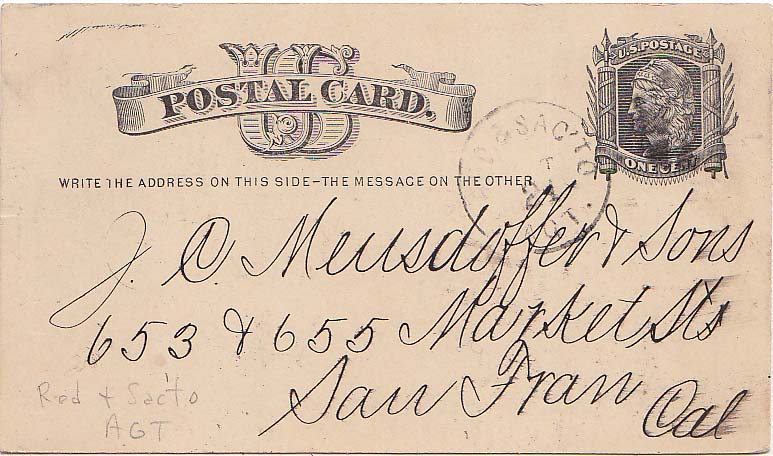 U.S. POSTAGE
ONE CENT
US
POSTAL CARD.
WRITE THE ADDRESS ON THIS SIDE-THE MESSAGE ON THE OTHER
D & SAC'TO
T
24
AGT.
J. C. Meusdoffer & Sons
653 & 655 Market Sts
San Fran
Cal
Red & Sac'to
AGT